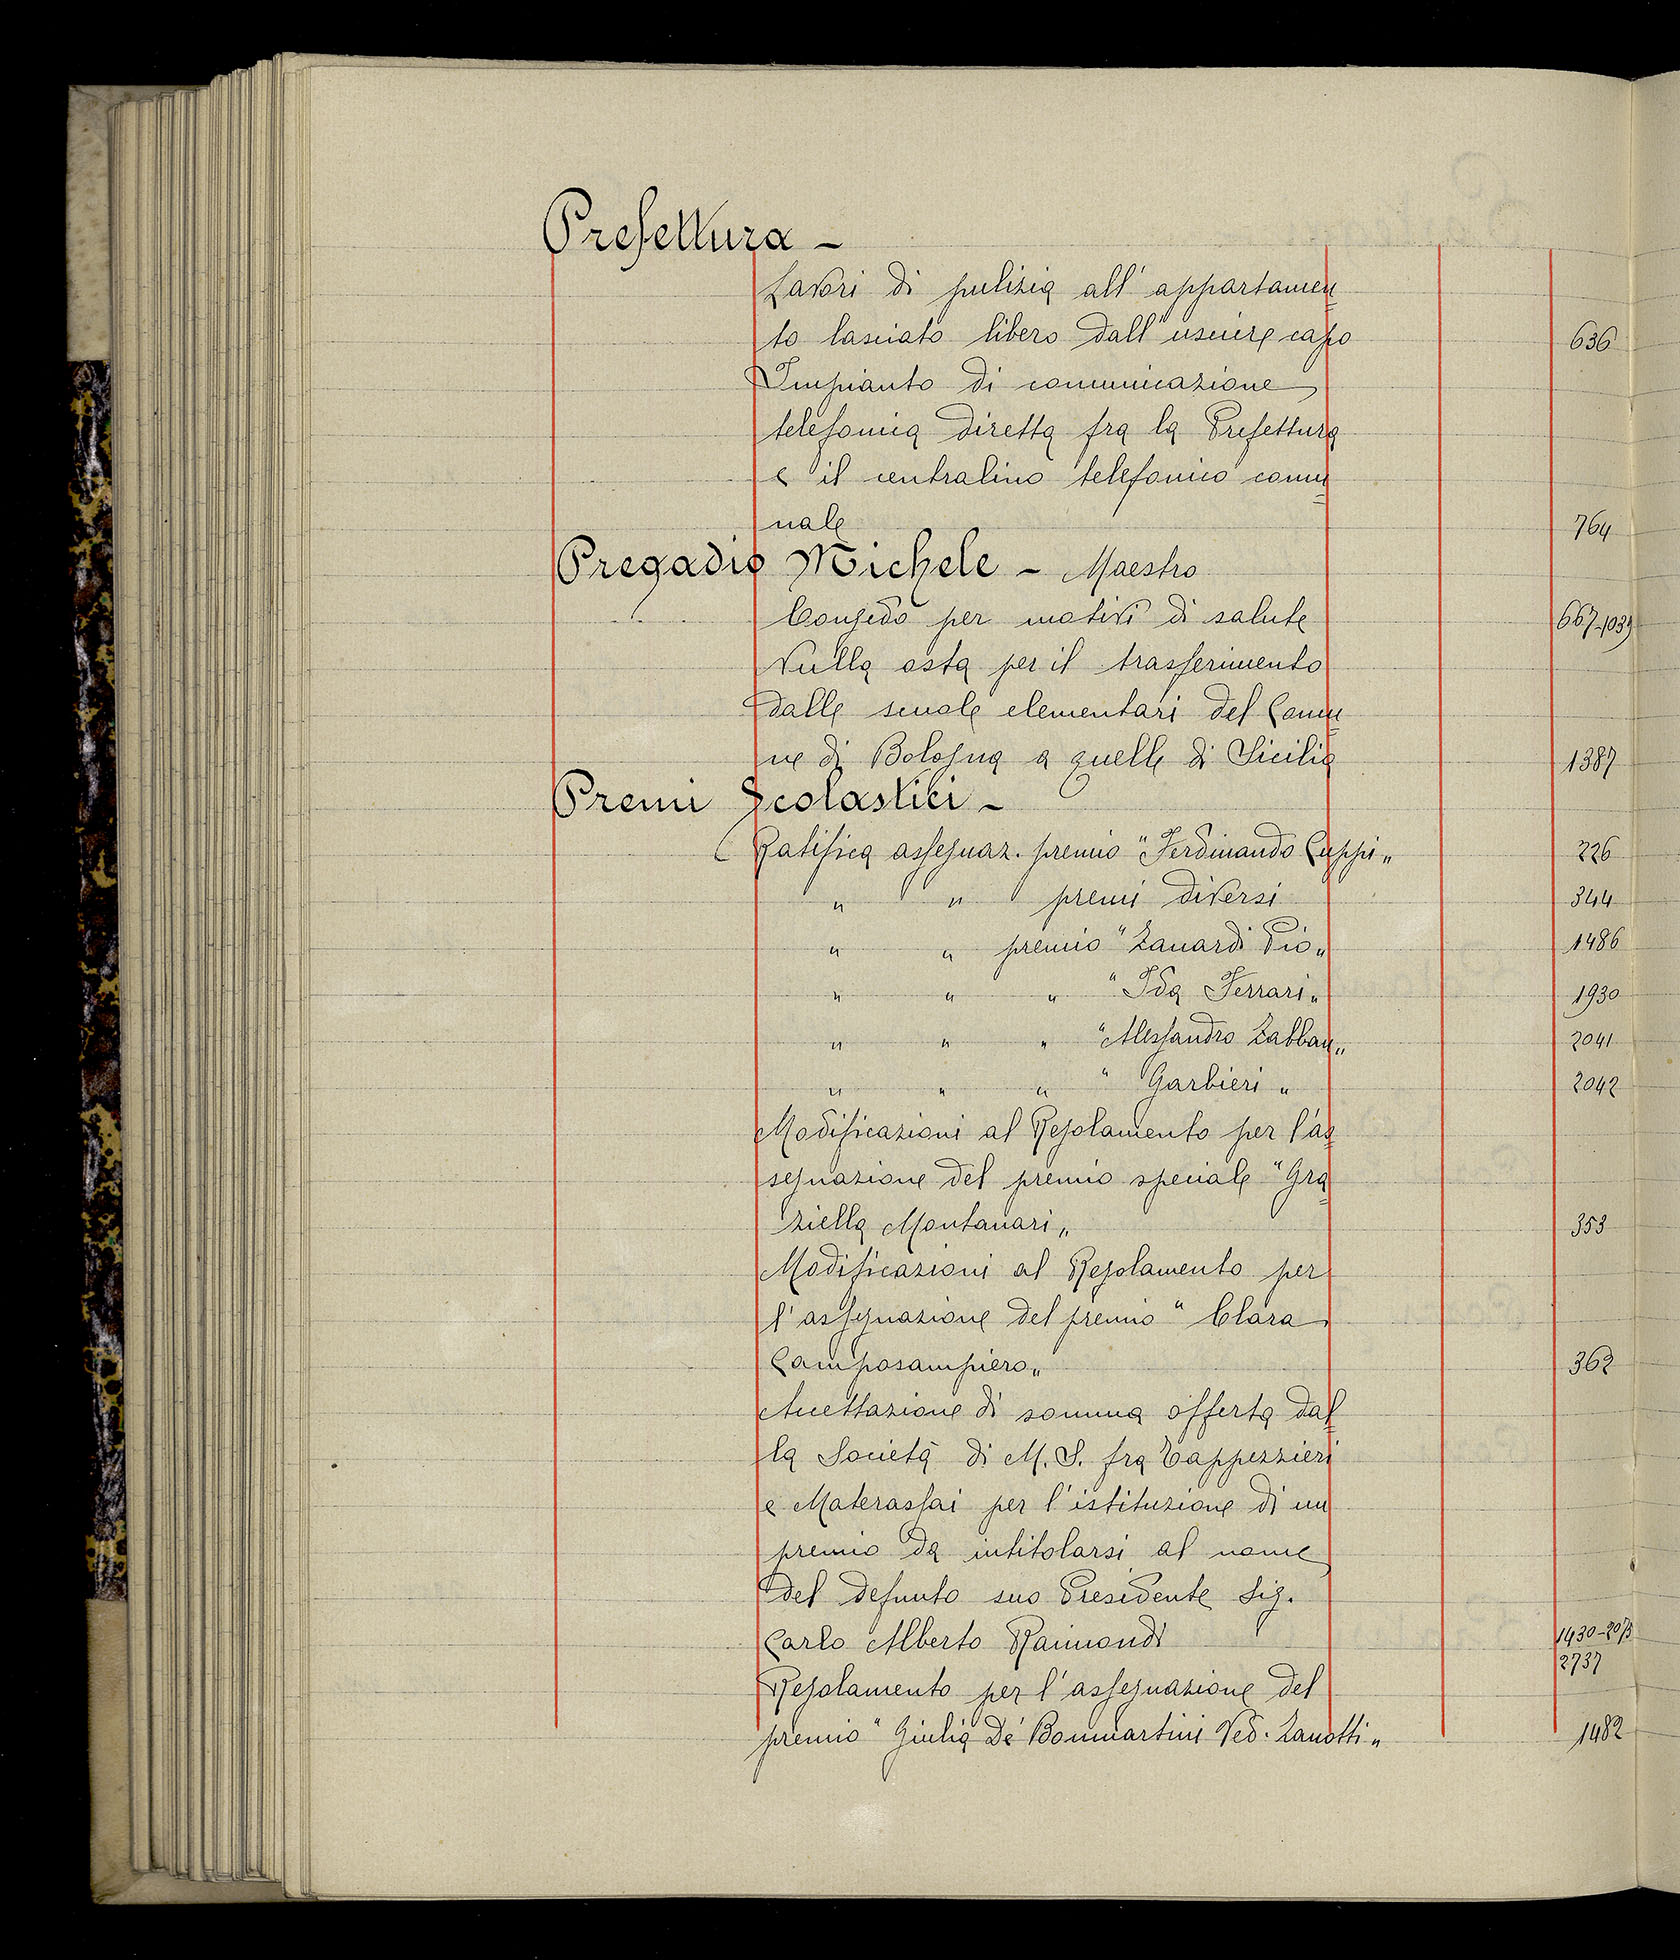 Prefettura -
Lavori di pulizia all'appartamen=
to lasciato libero dall'usciere capo 636
Impianto di comunicazione
telefonica diretta fra la Prefettura
e il centralino telefonico comu=
nale 764
Pregadio Michele - Maestro
Congedo per motivi di salute 667-1039
Nulla osta per il trasferimento
dalle scuole elementari del Comu=
ne di Bologna a quelle di Sicilia 1387
Premi Scolastici -
Ratifica assegnaz. premio "Ferdinando Cuppi" 226
" " premi diversi 344
" " premio "Zanardi Pio" 1486
" " " "Ida Ferrari" 1930
" " " "Alessandro Zabban" 2041
" " " "Garbieri" 2042
Modificazioni al Regolamento per l'as=
segnazione del premio speciale "Gra=
ziella Montanari" 353
Modificazioni al Regolamento per
l'assegnazione del premio "Clara
Camposampiero" 362
Accettazione di somma offerta dal=
la Società di M. S. fra Tappezzieri
e Materassai per l'istituzione di un
premio da intitolarsi al nome
del defunto suo Presidente Sig.
Carlo Alberto Raimondi 1430-
2737
Regolamento per l'assegnazione del
premio "Giulia De' Bonmartini Ved. Zanotti" 1482